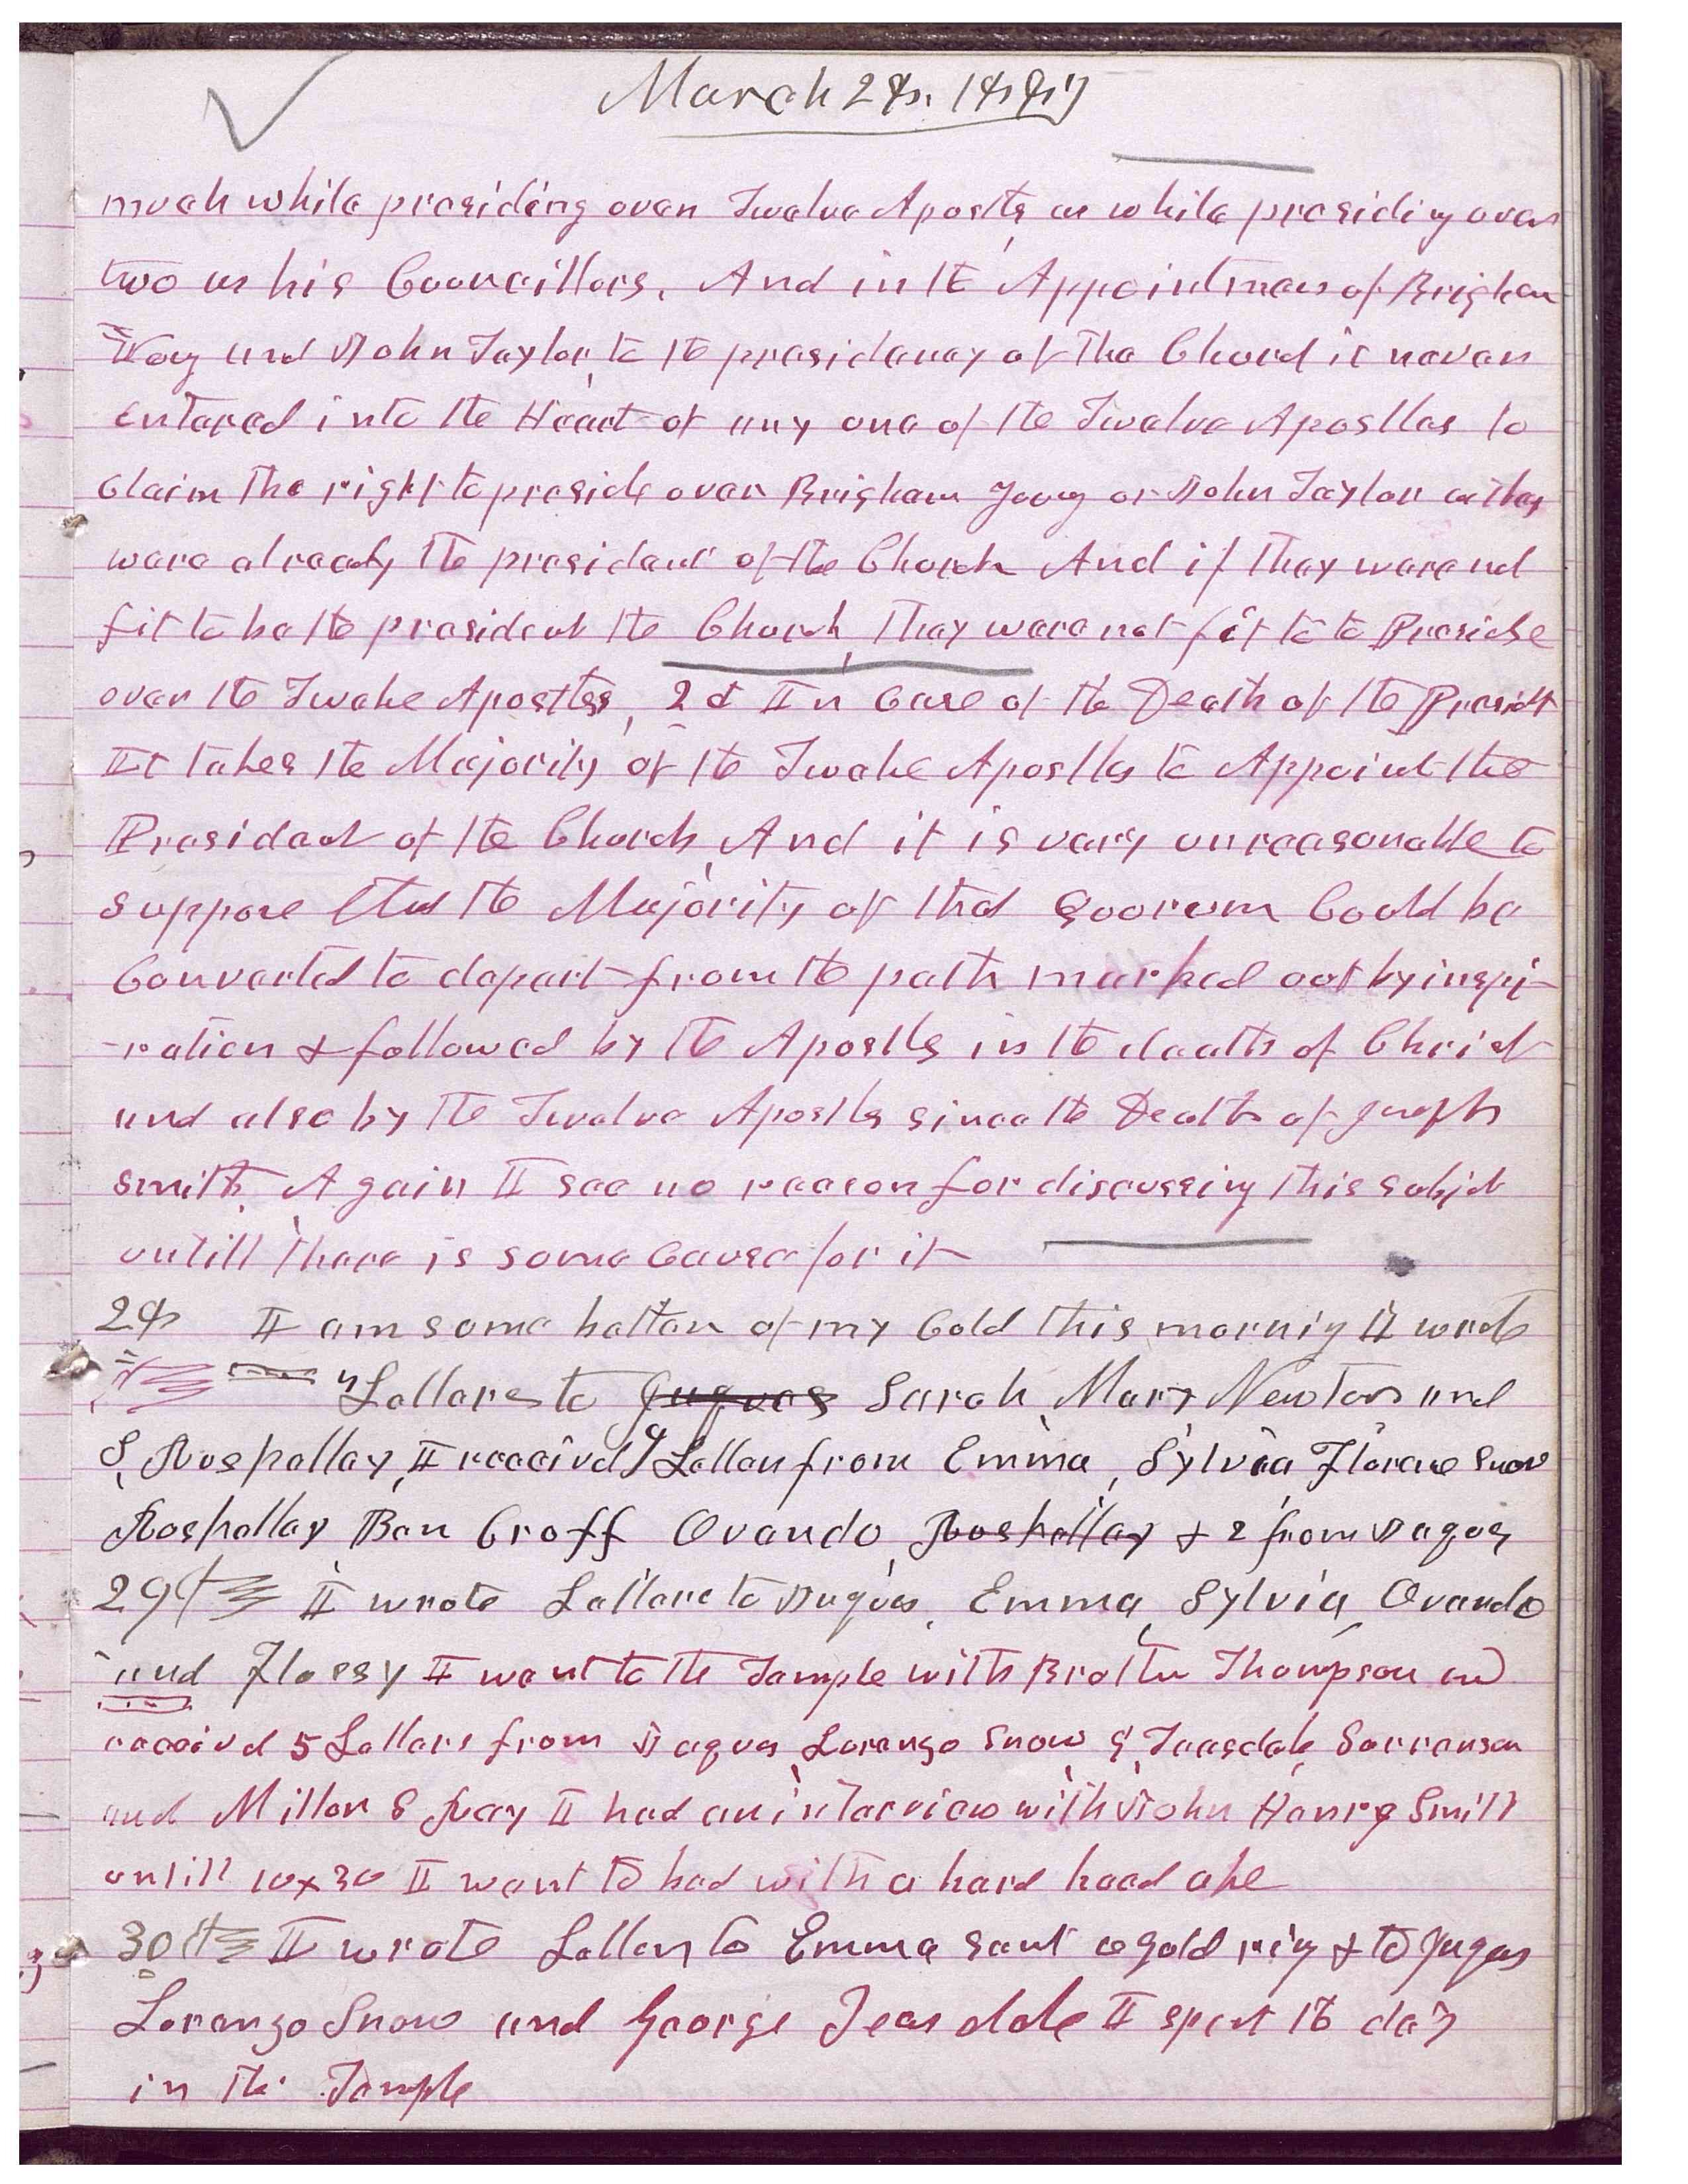 March 28. 1887
much while presiding over Twelve Apostls as while presiding over
two as his Councillors. And in the Appointmen of Brigham
Young and John Taylor, to the presidency of the Church it never
Entered into the Heart of any one of the Twelve Apostles to
claim the right to preside over Brigham Young or John Taylor as they
ware already the president of the Church And if they ware not
fit to be the president the Church, they ware not fit to to Preside
over the Twelve Apostles, 2d In Case of the Death of the Presidt
It takes the Majority of the Twelve Apostles to Appoint the
President of the Church, And it is vary unreasonable to
suppose that the Majority of that Quorum Could be
Converted to depart from the path marked out by inspi-
-ration & followed by the Apostles in the death of Christ
and also by the Twelve Apostles since the Death of Joseph
Smith. Again I see no reason for discussing this subjet
untill there is some Cause for it
28 I am some better of my Cold this morning I wrote
4 Letters to Jaques Sarah, Mary, Newton and
S, Roskelley, I receivd 9 Letters from Emma, Sylvia Florence Snow
Roskelley Ben Croff Ovando, Roskelley & 2 from Jaques
29th I wrote Letters to Jaques, Emma, Sylvia, Ovando
and Flossy I went to the Temple with Brother Thompson and
receivd 5 Letters from Jaques, Lorenzo Snow & Teasdale, Sorrenson
and Miller & Ivey I had an interview with John Henry Smith
untill 10x30 I went to bed with a hard head ake
30th I wrote Letters to Emma sent a gold ring & to Jaques
Lorenzo Snow and George Teasdale I spent the day
in the Temple